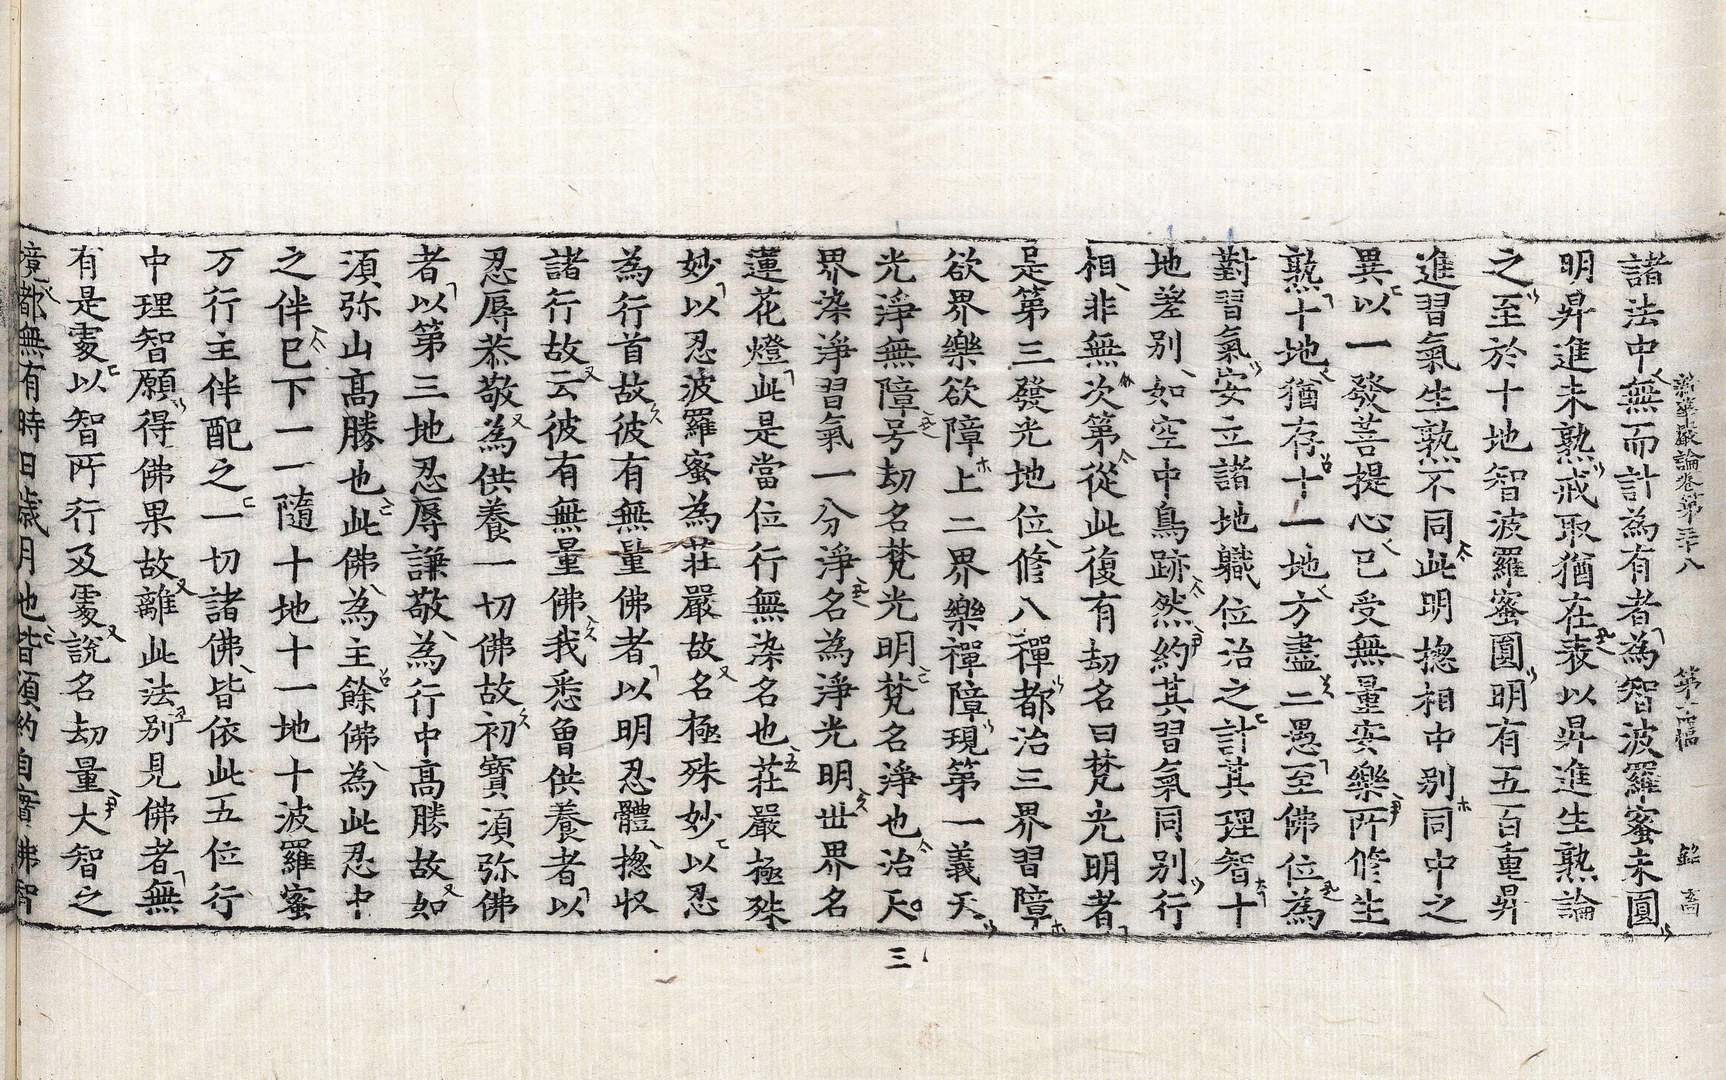 新華嚴論卷第三十八 第二幅 銘 啇
諸法中無而計為有者為智波羅蜜未圓
明昇進未熟戒取猶在義以昇進生熟論
之至於十地智波羅蜜圓明有五百重昇
進習氣生熟不同此明揔相中別同中之
異以一發菩提心已受無量安樂所修生
熟十地猶存十一地方盡二愚至佛位為
對習氣安立諸地軄位治之計其理智十
地差別如空中鳥跡然約其習氣同別行
相非無次第從此復有劫名曰梵光明者
是第三發光地位修八禪都治三界習障
欲界樂欲障上二界樂禪障現第一義天
光淨無障号劫名梵光明梵名淨也治天
界染淨習氣一分淨名為淨光明世界名
蓮花燈此是當位行無染名也莊嚴極殊
妙以忍波羅蜜為莊嚴故名極殊妙以忍
為行首故彼有無量佛者以明忍體揔収
諸行故云彼有無量佛我悉曾供養者以
忍辱恭敬為供養一切佛故初寶湏弥佛
者以第三地忍辱謙敬為行中高勝故如
湏弥山高勝也此佛為主餘佛為此忍中
之伴已下一一隨十地十一地十波羅蜜
万行主伴配之一切諸佛皆依此五位行
中理智願得佛果故離此法別見佛者無
有是䖏以智所行及䖏說名劫量大智之
境都無有時日歲月也皆須約自
三